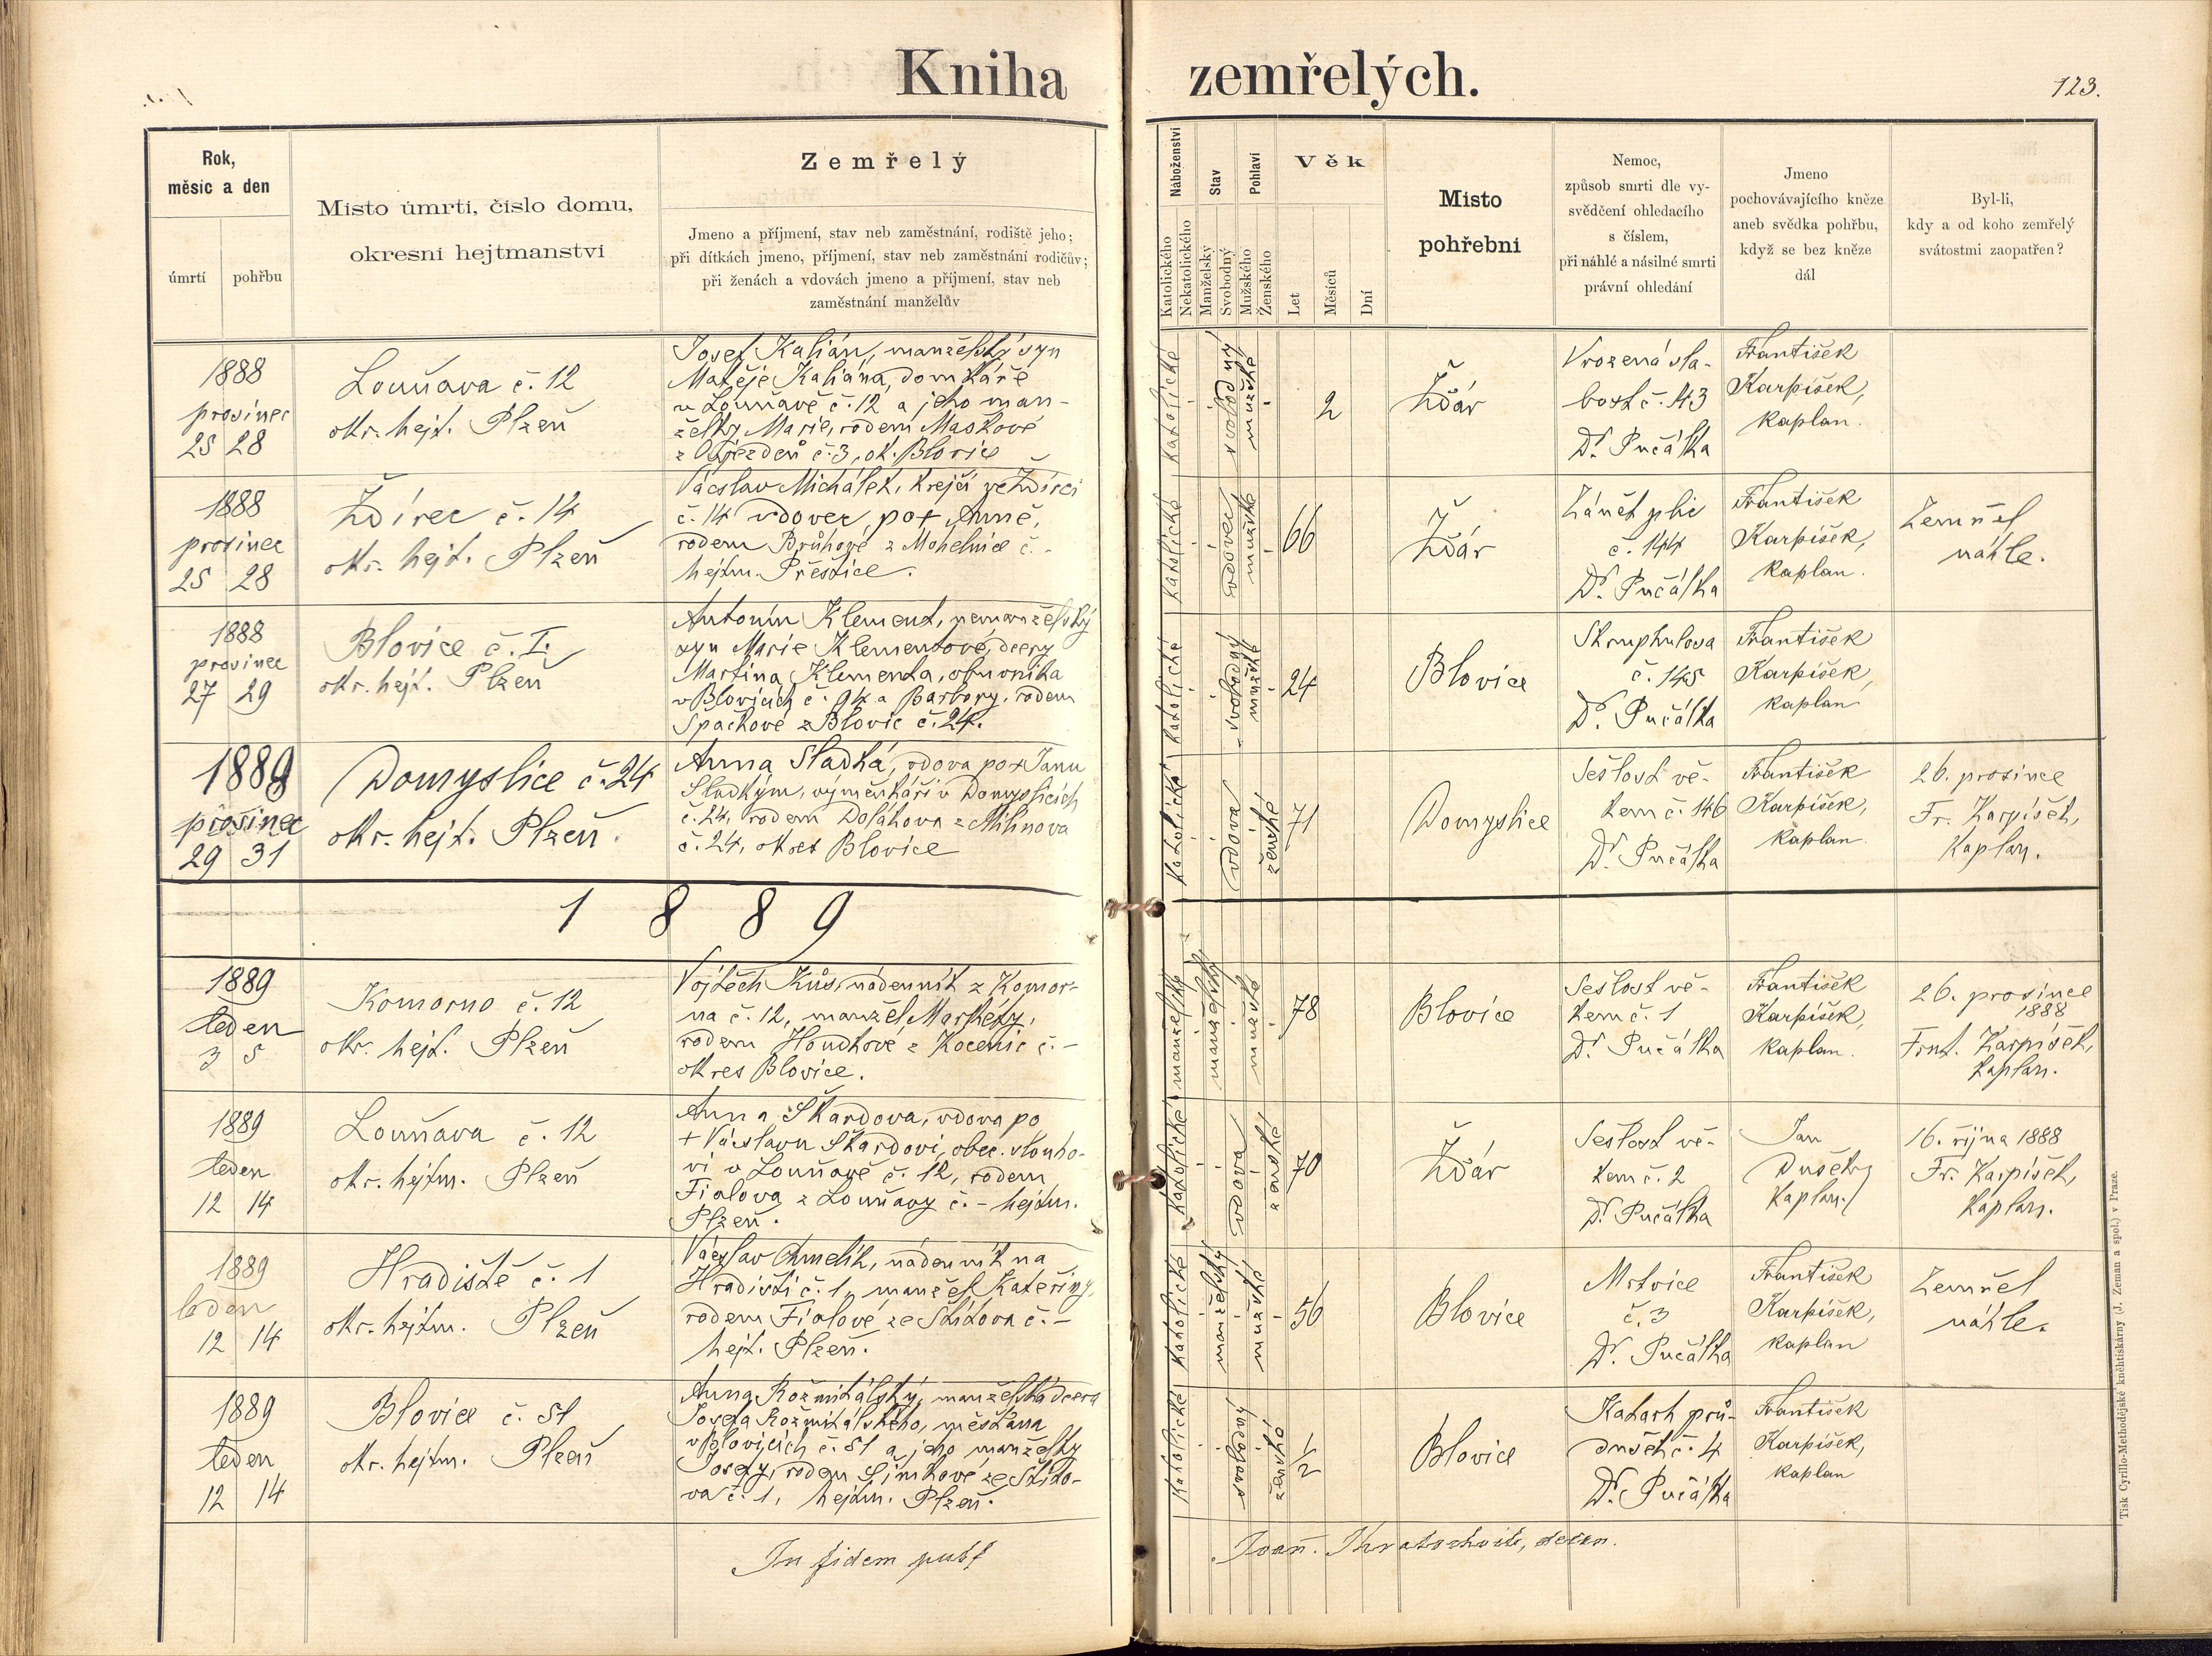 Kniha zemřelých.
123.
Rok,
měsíc a den
úmrtí
pohřbu
Místo úmrtí, číslo domu,
okresní hejtmanství
Zemřelý
Jmeno a příjmení, stav neb zaměstnání, rodiště jeho;
při dítkách jmeno, příjmení, stav neb zaměstnání rodičův;
při ženách a vdovách jmeno a příjmení, stav neb
zaměstnání manželův
Náboženství
Katolického
Nekatolického
Stav
Manželský
Svobodný
Pohlaví
Mužského
Ženského
Věk
Let
Měsíců
Dní
Místo
pohřební
Nemoc,
způsob smrti dle vy-
svědčení ohledacího
s číslem,
při náhlé a násilné smrti
právní ohledání
Jmeno
pochovávajícího kněze
aneb svědka pohřbu,
když se bez kněze
dál
Byl-li,
kdy a od koho zemřelý
svátostmi zaopatřen?
1888
prosinec
25 28
Louňava č. 12
okr. hejt. Plzeň
Josef Kalián, manželský syn
Matěje Kaliána, domkáře
v Louňavě č. 12 a jeho man-
želky Marie, rodem Maškové
z Oujezdeů č. 3, ok. Blovice
katolické
svobodný
mužské
2
Žďár
Vrozená sla-
bost č. 143
Dr. Pučálka
František
Karpíšek,
kaplan.
1888
prosinec
25 28
Ždírec č. 14
okr. hejt. Plzeň
Vácslav Michálek, krejčí ve Ždírci
č. 14 vdovec po + Anně,
rodem Brůhové z Mohelnice č. -
hejtm. Přeštice.
katolické
vdovec
mužské
66
Žďár
Zánět plic
č. 144
Dr. Pučálka
František
Karpíšek,
kaplan.
Zemřel
náhle.
1888
prosinec
27 29
Blovice č. I.
okr. hejt. Plzeň
Antonín Klement, nemanželský
syn Marie Klementové, dcery
Martina Klementa, obuvníka
v Blovicích č. 94 a Barbory, rodem
Spačkové z Blovic č. 24.
katolické
svobodný
mužské
24
Blovice
Skrophulosa
č. 145
Dr. Pučálka
František
Karpíšek,
kaplan
1889
prosinec
29 31
Domyslice č. 24
okr. hejt. Plzeň.
Anna Sladká, vdova po + Janu
Sladkým, výměnkáři v Domyslicích
č. 24, rodem Doláková z Milinova
č. 24, okres Blovice
katolické
vdova
ženské
71
Domyslice
Sešlost vě-
kem č. 146
Dr. Pučálka
František
Karpíšek,
kaplan.
26. prosince
Fr. Karpíšek,
kaplan.
1889
1889
leden
3 5
Komorno č. 12
okr. hejt. Plzeň
Vojtěch Kůs, nádenník z Komor-
na č. 12, manžel Markéty,
rodem Houdkové z Kocenic č. -
okres Blovice.
manželské
manželský
mužské
78
Blovice
Sešlost vě-
kem č. 1
Dr. Pučálka
František
Karpíšek,
kaplan.
26. prosince
1888
Frant. Karpíšek,
kaplan.
1889
leden
12 14
Louňava č. 12
okr. hejtm. Plzeň
Anna Škardova, vdova po
+ Vácslavu Škardovi, obec. slouho-
vi v Louňavě č. 12, rodem
Fialova z Louňavy č. - hejtm.
Plzeň.
katolické
vdova
ženské
70
Žďár
Sešlost vě-
kem č. 2
Dr. Pučálka
Jan
Dušek,
kaplan.
16. října 1888
Fr. Karpíšek,
kaplan.
1889
leden
12 14
Hradiště č. 1
okr. hejtm. Plzeň
Vácslav Chmelík, nádenník na
Hradišti č. 1, manžel Kateřiny,
rodem Fialové ze Štítova č. -
hejt. Plzeň.
katolické
manželský
mužské
56
Blovice
Mrtvice
č. 3
Dr. Pučálka
František
Karpíšek,
kaplan
Zemřel
náhle.
1889
leden
12 14
Blovice č. 51
okr. hejtm. Plzeň
Anna Rožmitálský, manželská dcera
Josefa Rožmitálského, měšťana
v Blovicích č. 51 a jeho manželky
Josefy, rodem Šimkové ze Štíto-
va č. 1, hejtm. Plzeň.
katolické
svobodný
ženské
1/2
Blovice
Katarh prů-
dušek č. 4
Dr. Pučálka
František
Karpíšek,
kaplan
In fidem publ
Joan.
Tisk Cyrillo-Methodějské knihtiskárny (J. Zeman a spol.) v Praze.